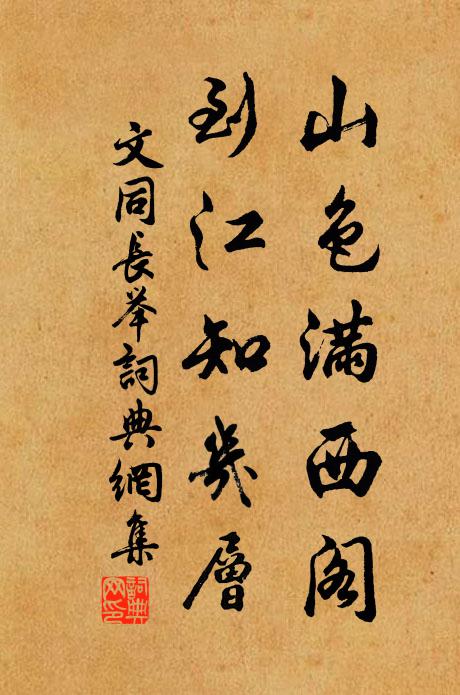 山色滿西阁
到江知幾層
文同長举詞典網集
詞典网印